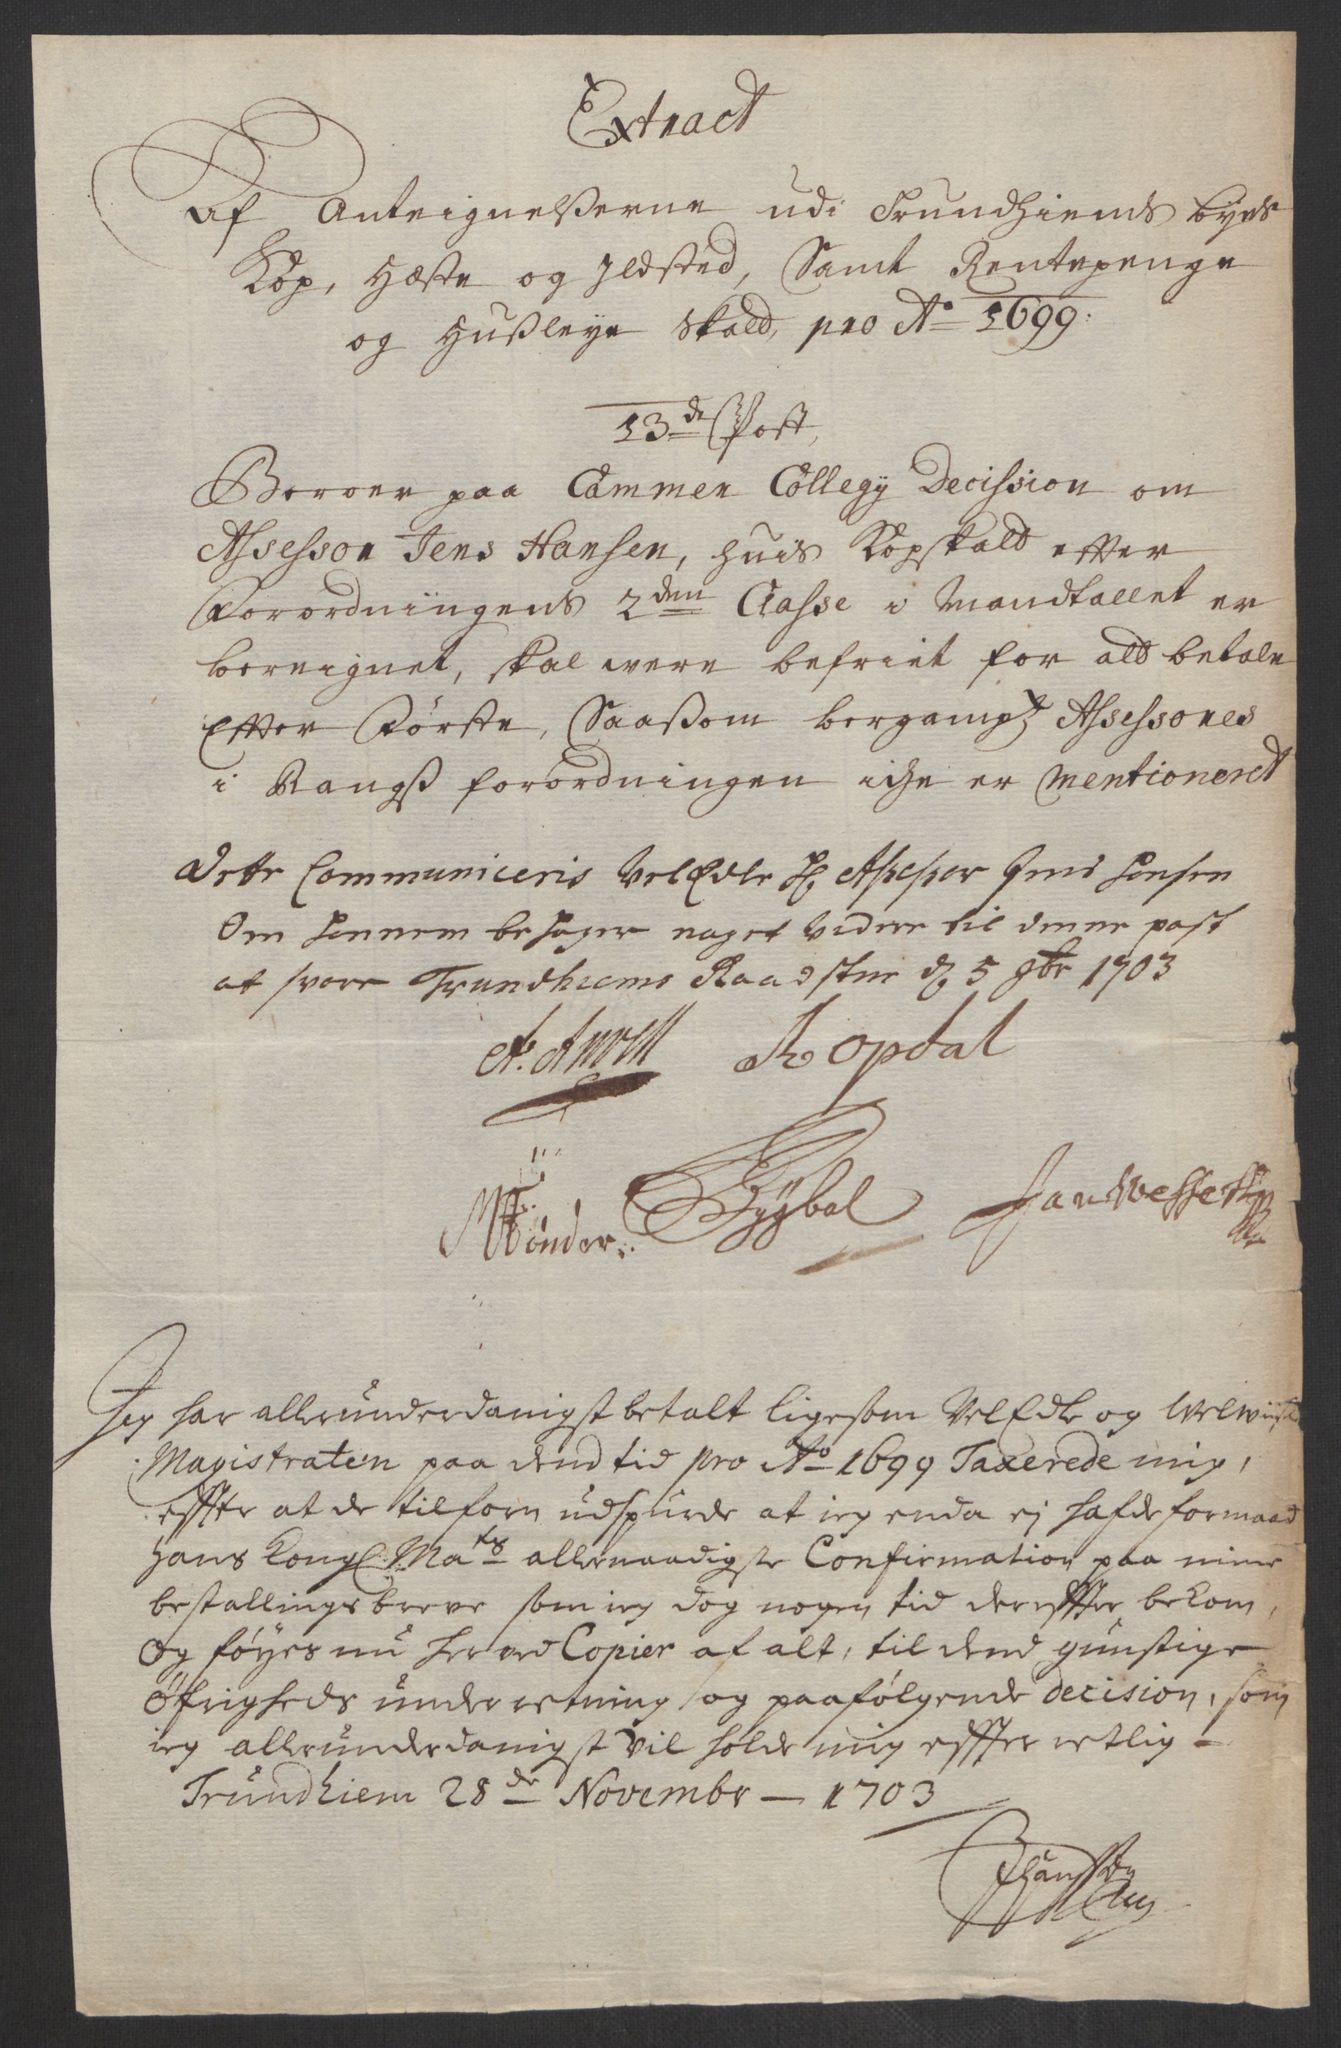 Extract
Af Anteignelßerne udi Trundhiembs byes
Kop, Hæste og Ildsted, Samt Rentepenge
og Hußleye Skald, pro Ao 1699:
13de Post,
Beroer paa Cammer Collegij Decission om
Assessor Jens Hansen, huis Kopskald effter
Forordningens 2den Classe i Mandtallet er
bereignet, skal were befriet for ald betale
Effter Første, Saaßom bergampt Assessores
i Rangß forordningen iche er mentioneret
Dette Communiceris VelEdle Hr Assessor Jens Hansen
Om hannem behager noget videre til denne post
at svare Trundhiems Raadstue d 5 9br 1703
R Opdal
Jeg har allerunderdanigst betalt ligesom VelEdle og Welwiise
Magistraten paa dend tid pro Ao 1699 Taxerede mig,
effter at de tilforn udspurde at ieg enda ej hafde formaad
Hans Kongl: Mats allernaadigste Confirmation paa mine
bestallings breve som ieg dog nogen tid dereffter bekom,
og føyes nu herved Copier af alt, til dend gunstige
Øfrigheds underretning og paafølgende decision, som
ieg allerunderdanigst vil holde mig effterretlig
Trundhiem 28de Novembr 1703